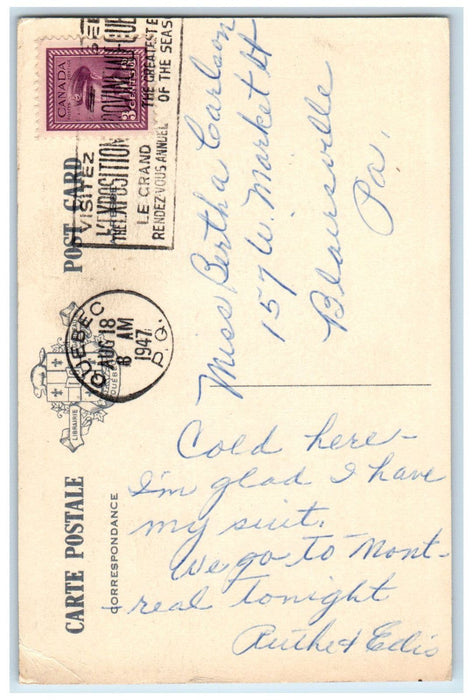 CANADA
3 CENTS
VISITEZ
L'EXPOSITION
LE GRAND
RENDEZ-VOUS ANNUEL
SEE
THE GREATEST
OF THE SEAS
POST CARD
QUEBEC
AUG 18
8 AM
1947
P.Q.
LIBRAIRIE
QUÉBEC
CARTE POSTALE
CORRESPONDANCE
Miss Bertha Carlson
157 W. Market St
Blairsville
Pa.
Cold here -
I'm glad I have
my suit.
We go to Mont-
real tonight
Ruthe & Edis